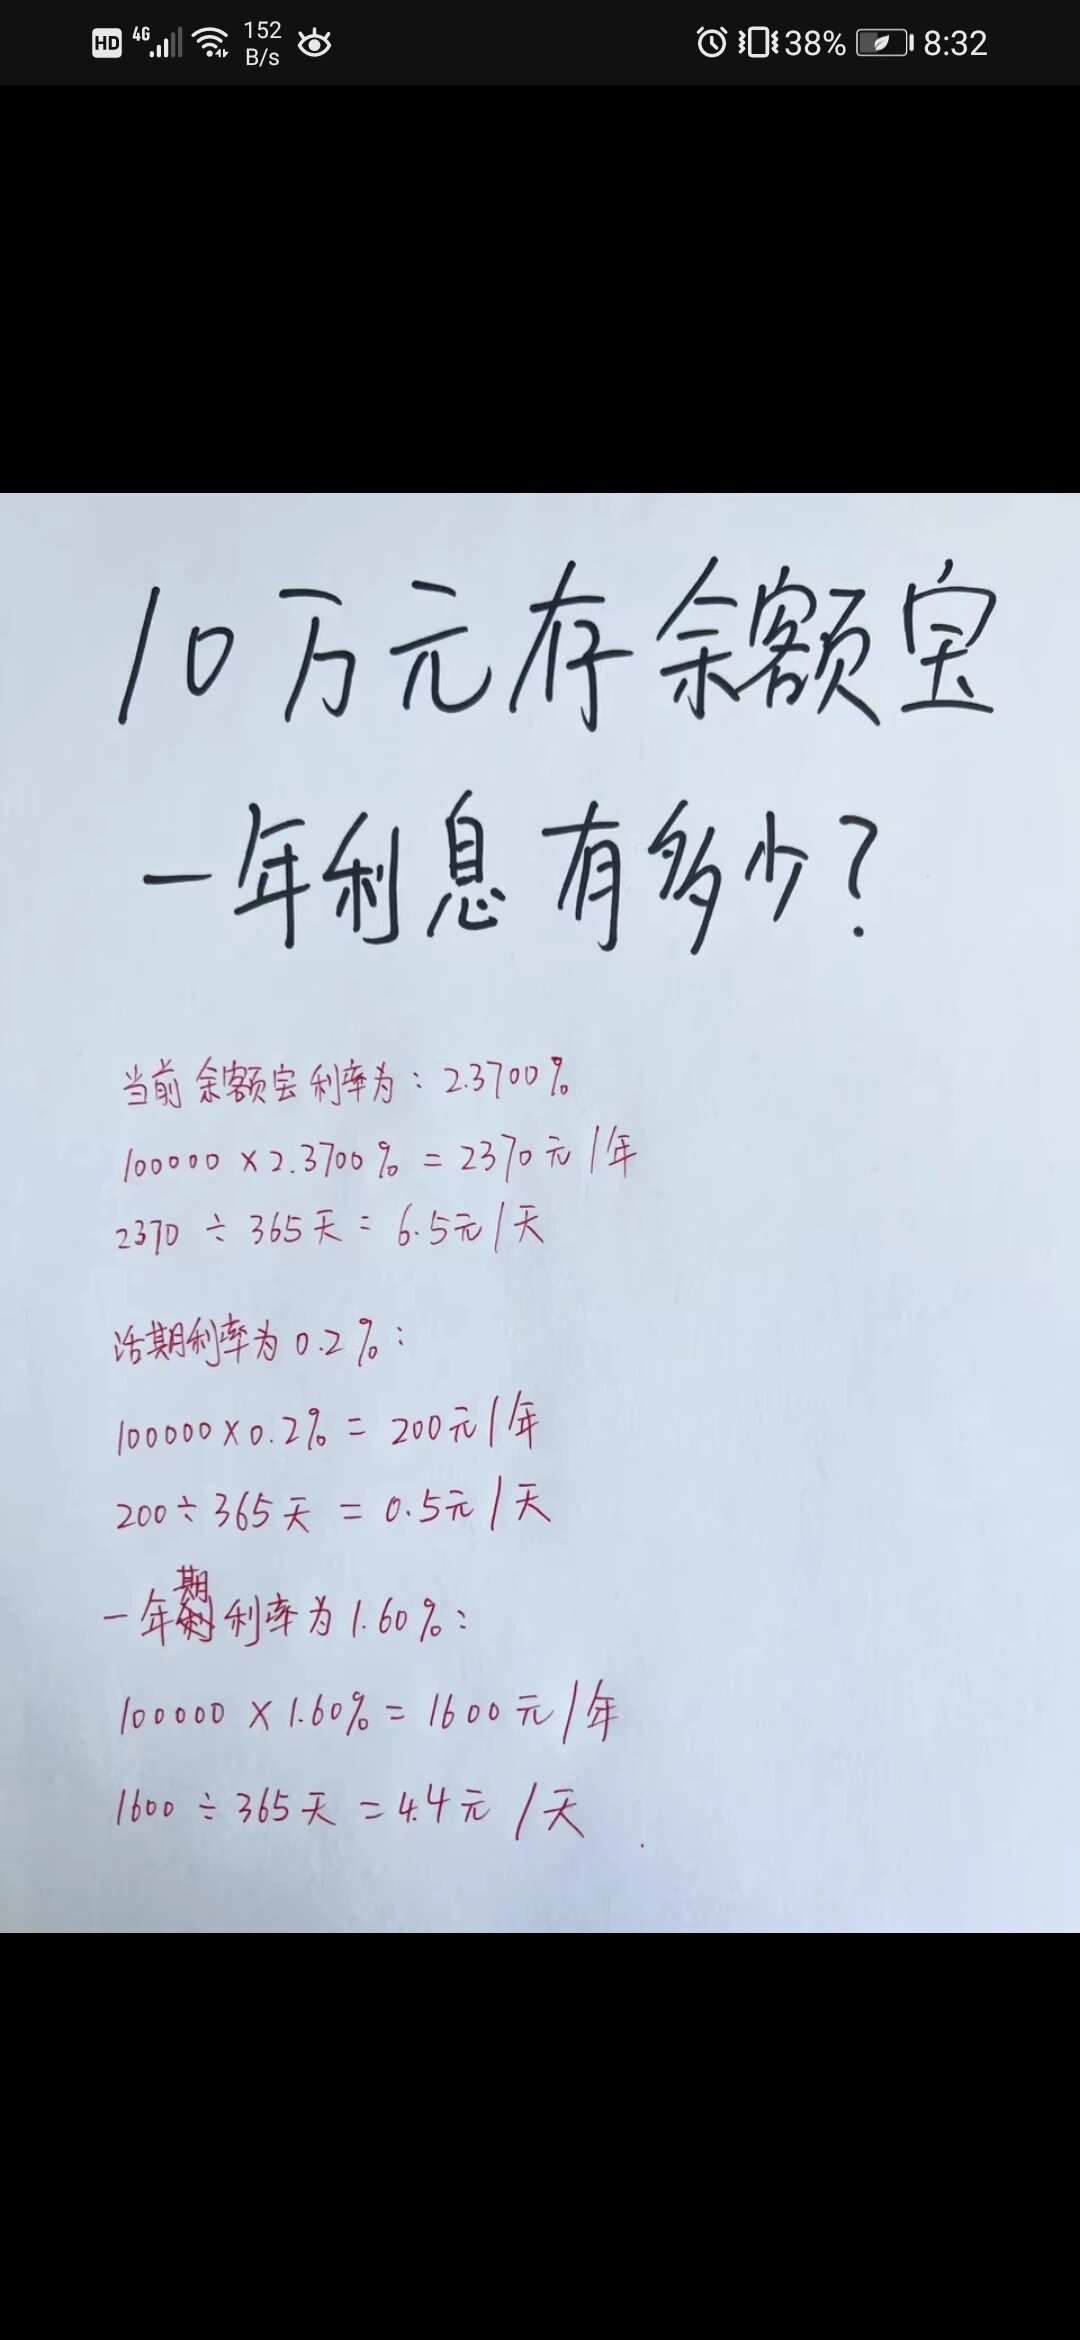 HD 4G 152 B/s 38% 8:32
10万元存余额宝
一年利息有多少?
当前余额宝利率为：2.3700%
100000×2.3700%=2370元/年
2370÷365天=6.5元/天
活期利率为0.2%：
100000×0.2%=200元/年
200÷365天=0.5元/天
一年期利率为1.60%：
100000×1.60%=1600元/年
1600÷365天=4.4元/天